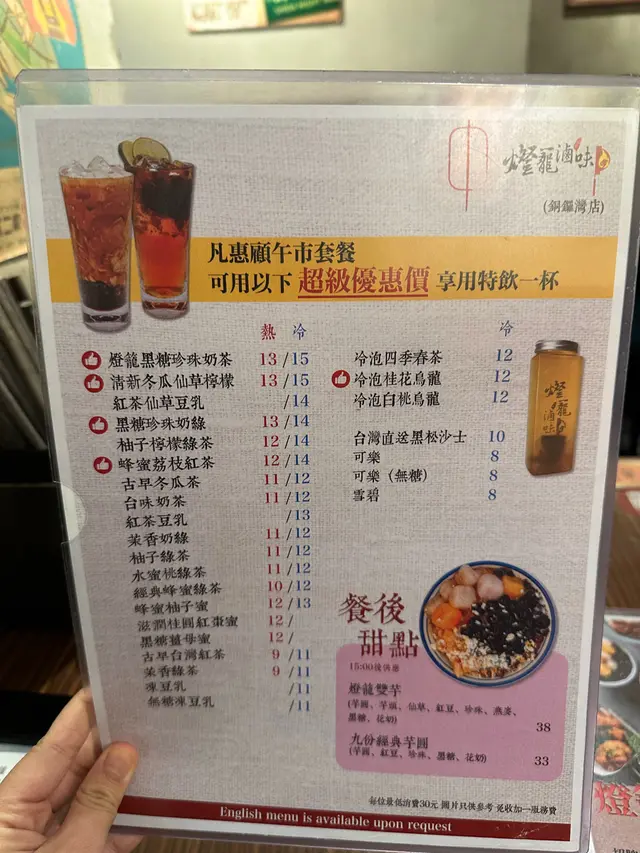 燈籠滷味
(銅鑼灣店)
凡惠顧午市套餐
可用以下 超級優惠價 享用特飲一杯
熱 冷
燈籠黑糖珍珠奶茶 13 / 15
清新冬瓜仙草檸檬 13 / 15
紅茶仙草豆乳 / 14
黑糖珍珠奶綠 13 / 14
柚子檸檬綠茶 12 / 14
蜂蜜荔枝紅茶 12 / 14
古早冬瓜茶 11 / 12
台味奶茶 11 / 12
紅茶豆乳 / 13
茉香奶綠 11 / 12
柚子綠茶 11 / 12
水蜜桃綠茶 11 / 12
經典蜂蜜綠茶 10 / 12
蜂蜜柚子蜜 12 / 13
滋潤桂圓紅棗蜜 12 /
黑糖薑母蜜 12 /
古早台灣紅茶 9 / 11
茉香綠茶 9 / 11
凍豆乳 / 11
無糖凍豆乳 / 11
冷
冷泡四季春茶 12
冷泡桂花烏龍 12
冷泡白桃烏龍 12
台灣直送黑松沙士 10
可樂 8
可樂（無糖） 8
雪碧 8
燈籠滷味
餐後
甜點
15:00後供應
燈籠雙芋
(芋圓、芋頭、仙草、紅豆、珍珠、燕麥、
黑糖、花奶) 38
九份經典芋圓
(芋圓、紅豆、珍珠、黑糖、花奶) 33
每位最低消費30元 圖片只供參考 免收加一服務費
English menu is available upon request